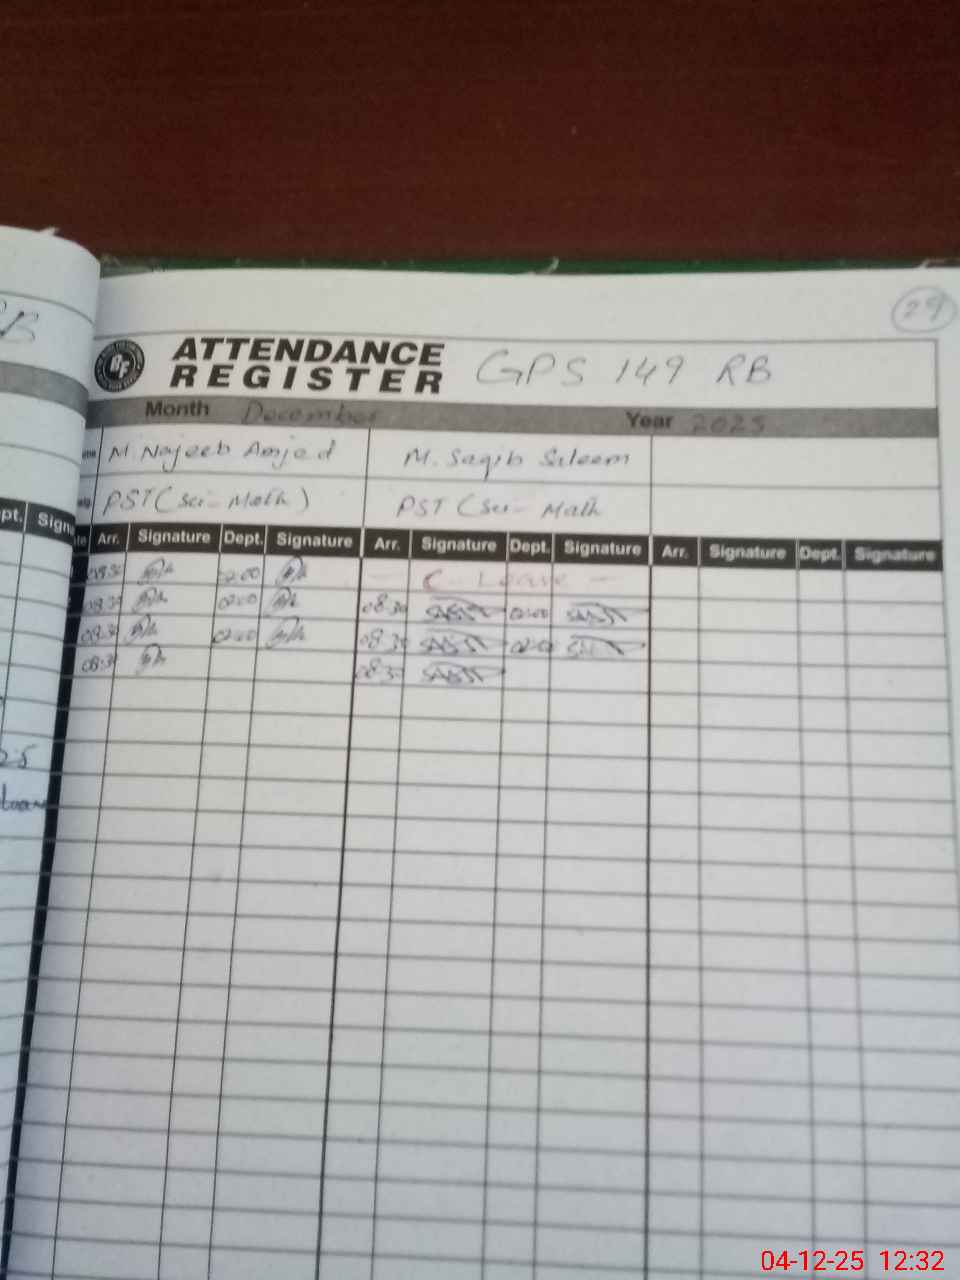 29
ATTENDANCE
REGISTER GPS 149 RB
Month December Year 2025
M. Najeeb Amjad M. Saqib Saleem
PST (Sci-Math) PST (Sci-Math
Arr. Signature Dept. Signature Arr. Signature Dept. Signature Arr. Signature Dept. Signature
08:30 02:00 C-Leave
08:30 02:00 08:30 02:00
08:30 02:00 08:30 02:00
08:30 08:30
pt. Signa
04-12-25 12:32